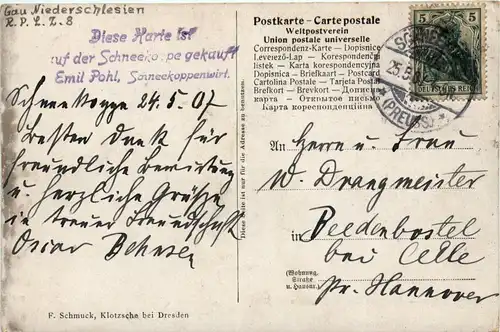 Gau Niederschlesien
R.P.L.Z.8
Diese Karte ist
auf der Schneekoppe gekauft
Emil Pohl, Schneekoppenwirt.
Schneekoppe 24.5.07
Besten Dank für
freundliche Bewirtung
u. herzliche Grüße
in treuer Freundschaft
Oscar Behnsen
F. Schmuck, Klotzsche bei Dresden
Diese Seite ist nur für die Adresse zu benutzen.
Postkarte – Carte postale
Weltpostverein
Union postale universelle
Correspondenz-Karte – Dopisnice
Levelező-Lap – Korespondenční
lístek – Karta korespondencyjna
Dopisnica – Briefkaart – Postcard
Cartolina Postale – Tarjeta Postal
Brefkort – Brevkort – Дописна
карта – Открытое письмо
Карта кореспонденційна
5 5
DEUTSCHES REICH
25.5
(PREUSS)
An Herrn u. Frau
W. Drangmeister
in Beedenbostel
bei Celle
(Wohnung,
Straße
u. Hausnr.)
Pr. Hannover